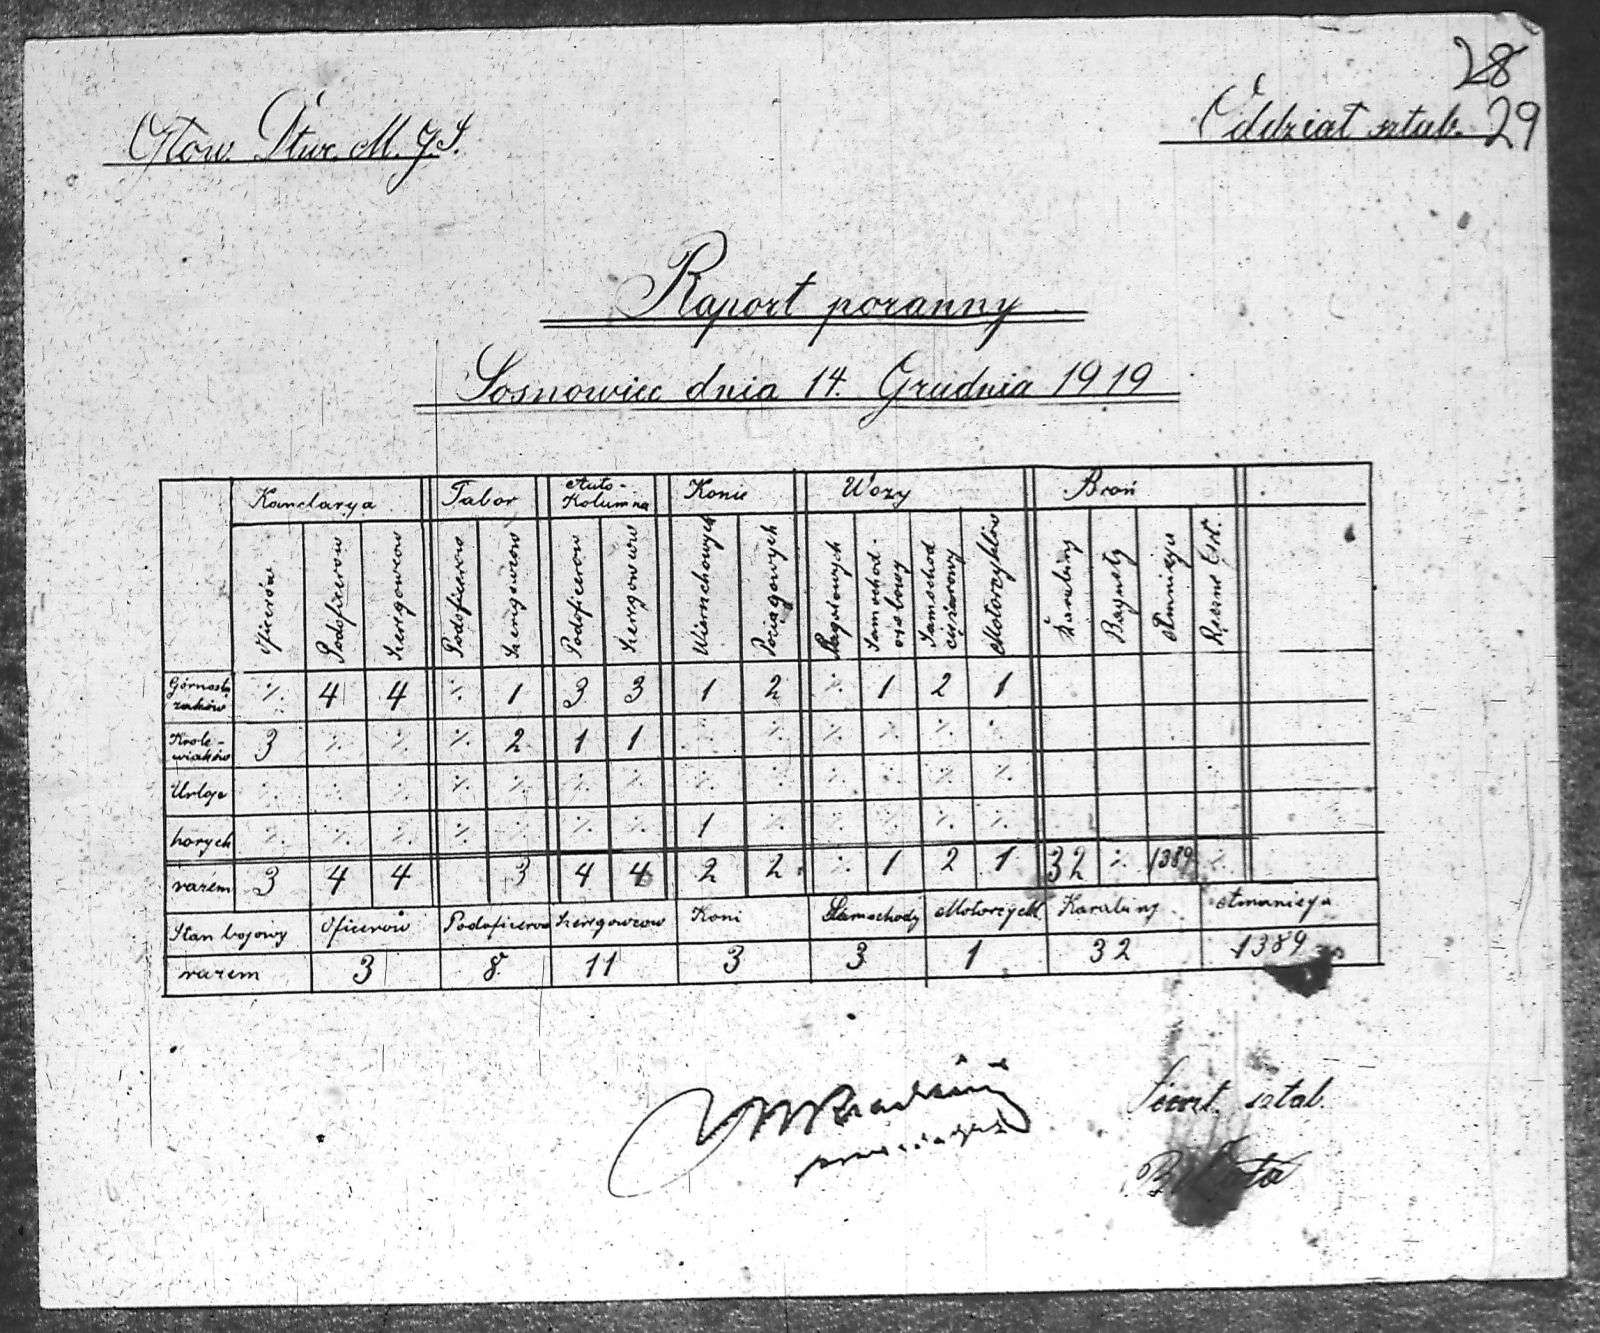 28
Głow. Dtwr. M. G. S.
Oddział sztab. 29
Raport poranny
Sosnowiec dnia 14. Grudnia 1919
Kancelarya Tabor Auto-Kolumna Konie Wozy Broń
Oficerów Podoficerów Szeregowców Podoficerów Szeregowców Podoficerów Szeregowców Wierzchowych Pociągowych Samochod osobowy Samochod ciężarowy Motorzyklów Karabiny Bagnety Amunicya Ręczne
Górnoślązaków ٪ 4 4 ٪ 1 3 3 1 2 ٪ 1 2 1
Krolewiaków 3 ٪ ٪ ٪ 2 1 1 ٪ ٪ ٪ ٪ ٪ ٪
Urlop ٪ ٪ ٪ ٪ ٪ ٪ ٪ ٪ ٪ ٪ ٪ ٪ ٪
horych ٪ ٪ ٪ ٪ ٪ ٪ ٪ 1 ٪ ٪ ٪ ٪ ٪
razem 3 4 4 3 4 4 2 2 ٪ 1 2 1 32 ٪ 1389 ٪
Stan bojowy Oficerów Podoficerów Szeregowców Koni Samochody Motorzykl. Karabiny Amunicya
razem 3 8 11 3 3 1 32 1389
sztab.